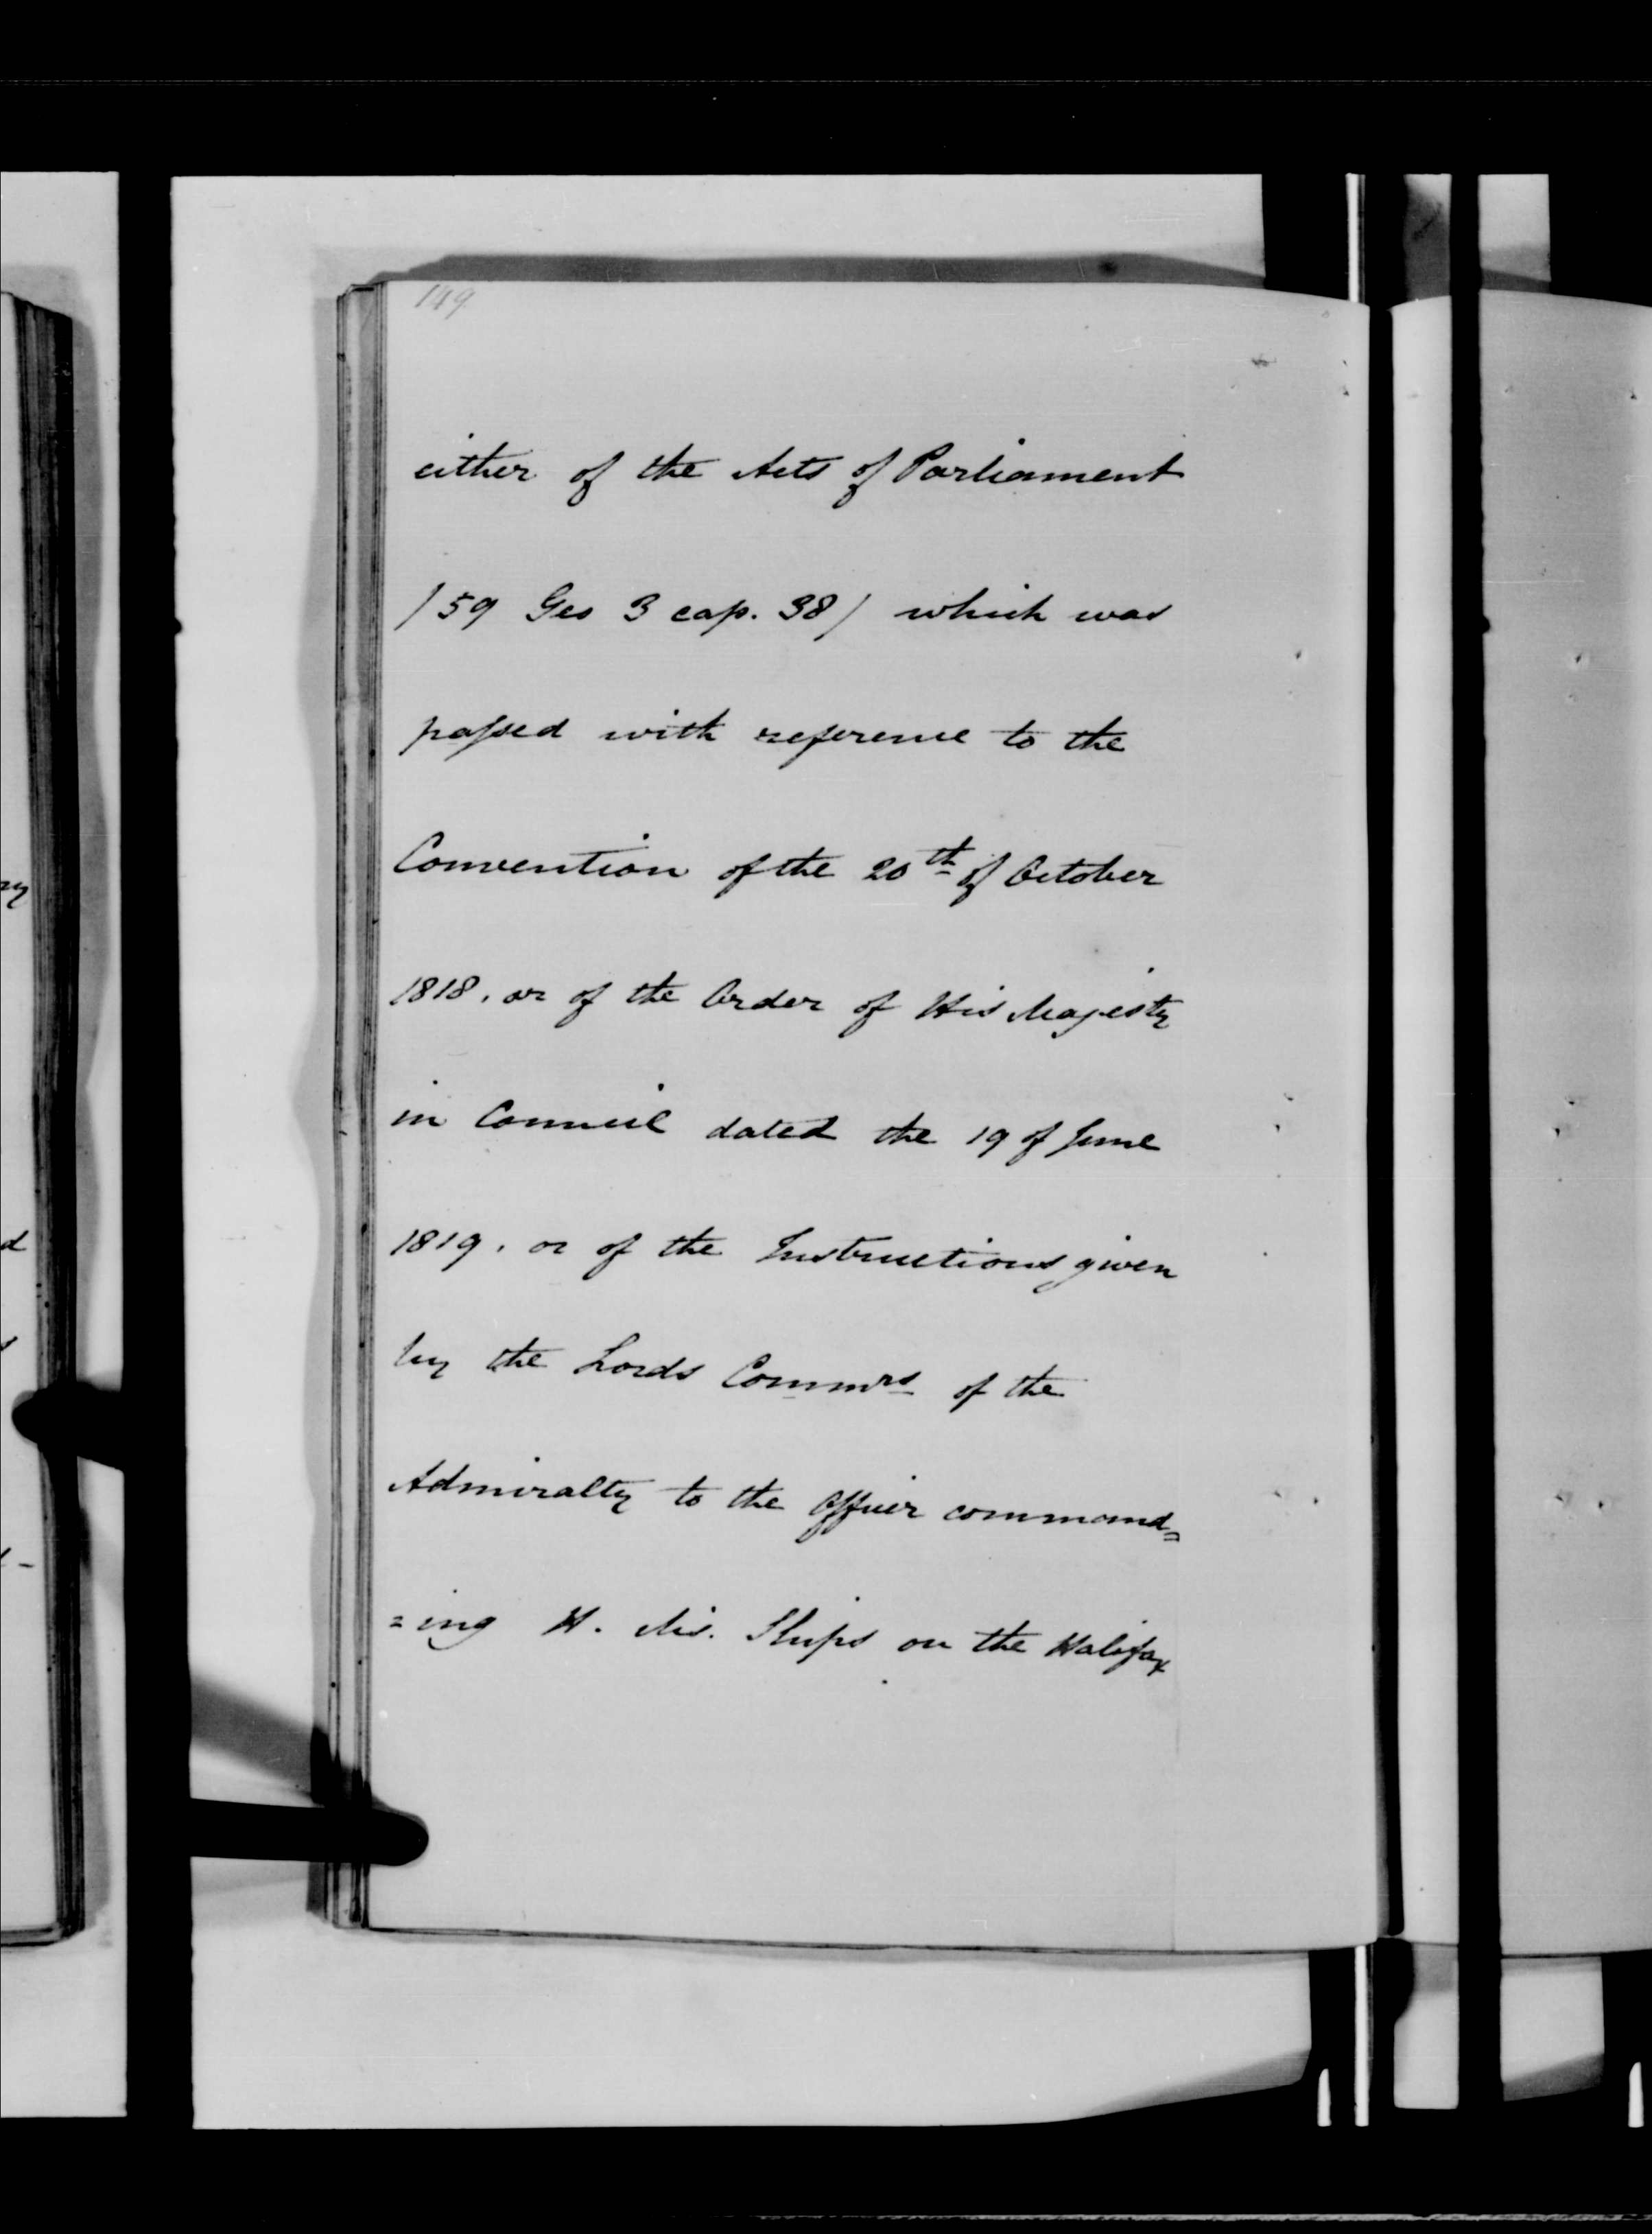 149
either of the Acts of Parliament
/59 Geo 3 cap. 38/ which was
passed with reference to the
Convention of the 20th of October
1818, or of the Order of His Majesty
in Council dated the 19 of June
1819, or of the Instructions given
by the Lords Commrs of the
Admiralty to the Officer command=
=ing H. Ms. Ships on the Halifax